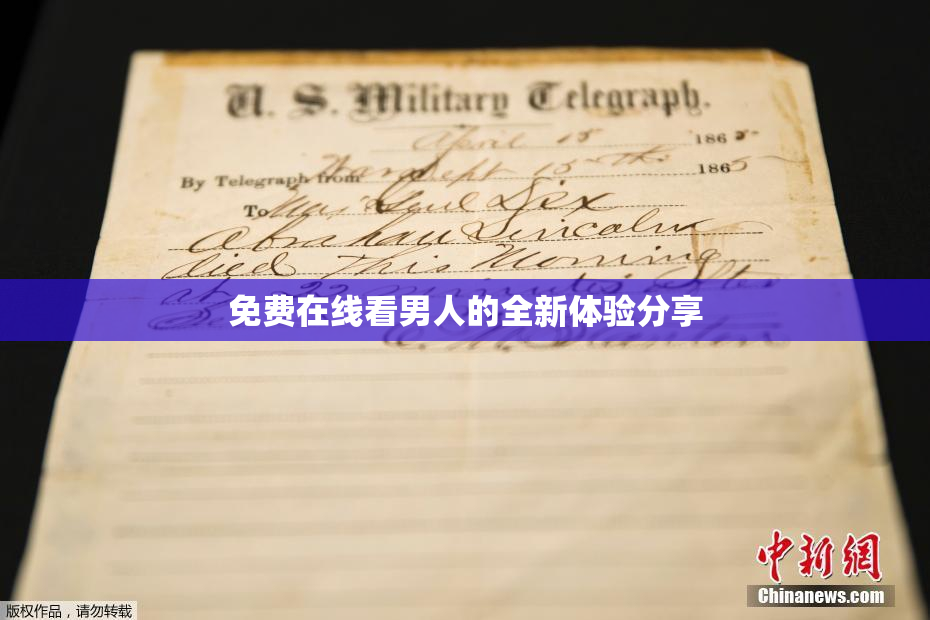 U. S. Military Telegraph.
April 15 1865
By Telegraph from War Dept 15th 1865
To Maj Genl Dix
Abraham Lincoln
died This Morning
at 22 minutes after
免费在线看男人的全新体验分享
中新網
Chinanews.com
版权作品，请勿转载